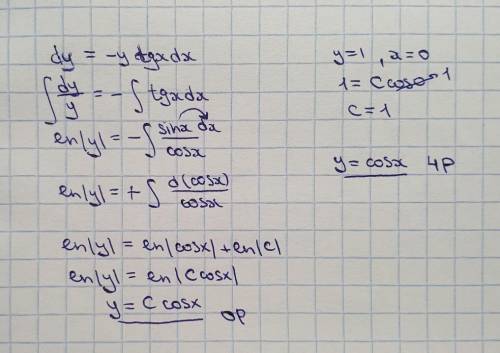 dy = -y tgxdx
∫ dy/y = - ∫ tgxdx
en|y| = - ∫ sinx dx / cosx
en|y| = + ∫ d(cosx) / cosx
en|y| = en|cosx| + en|c|
en|y| = en|Ccosx|
y = C cosx op
y=1 , x=0
1 = C cos0 1
C = 1
y = cosx чр